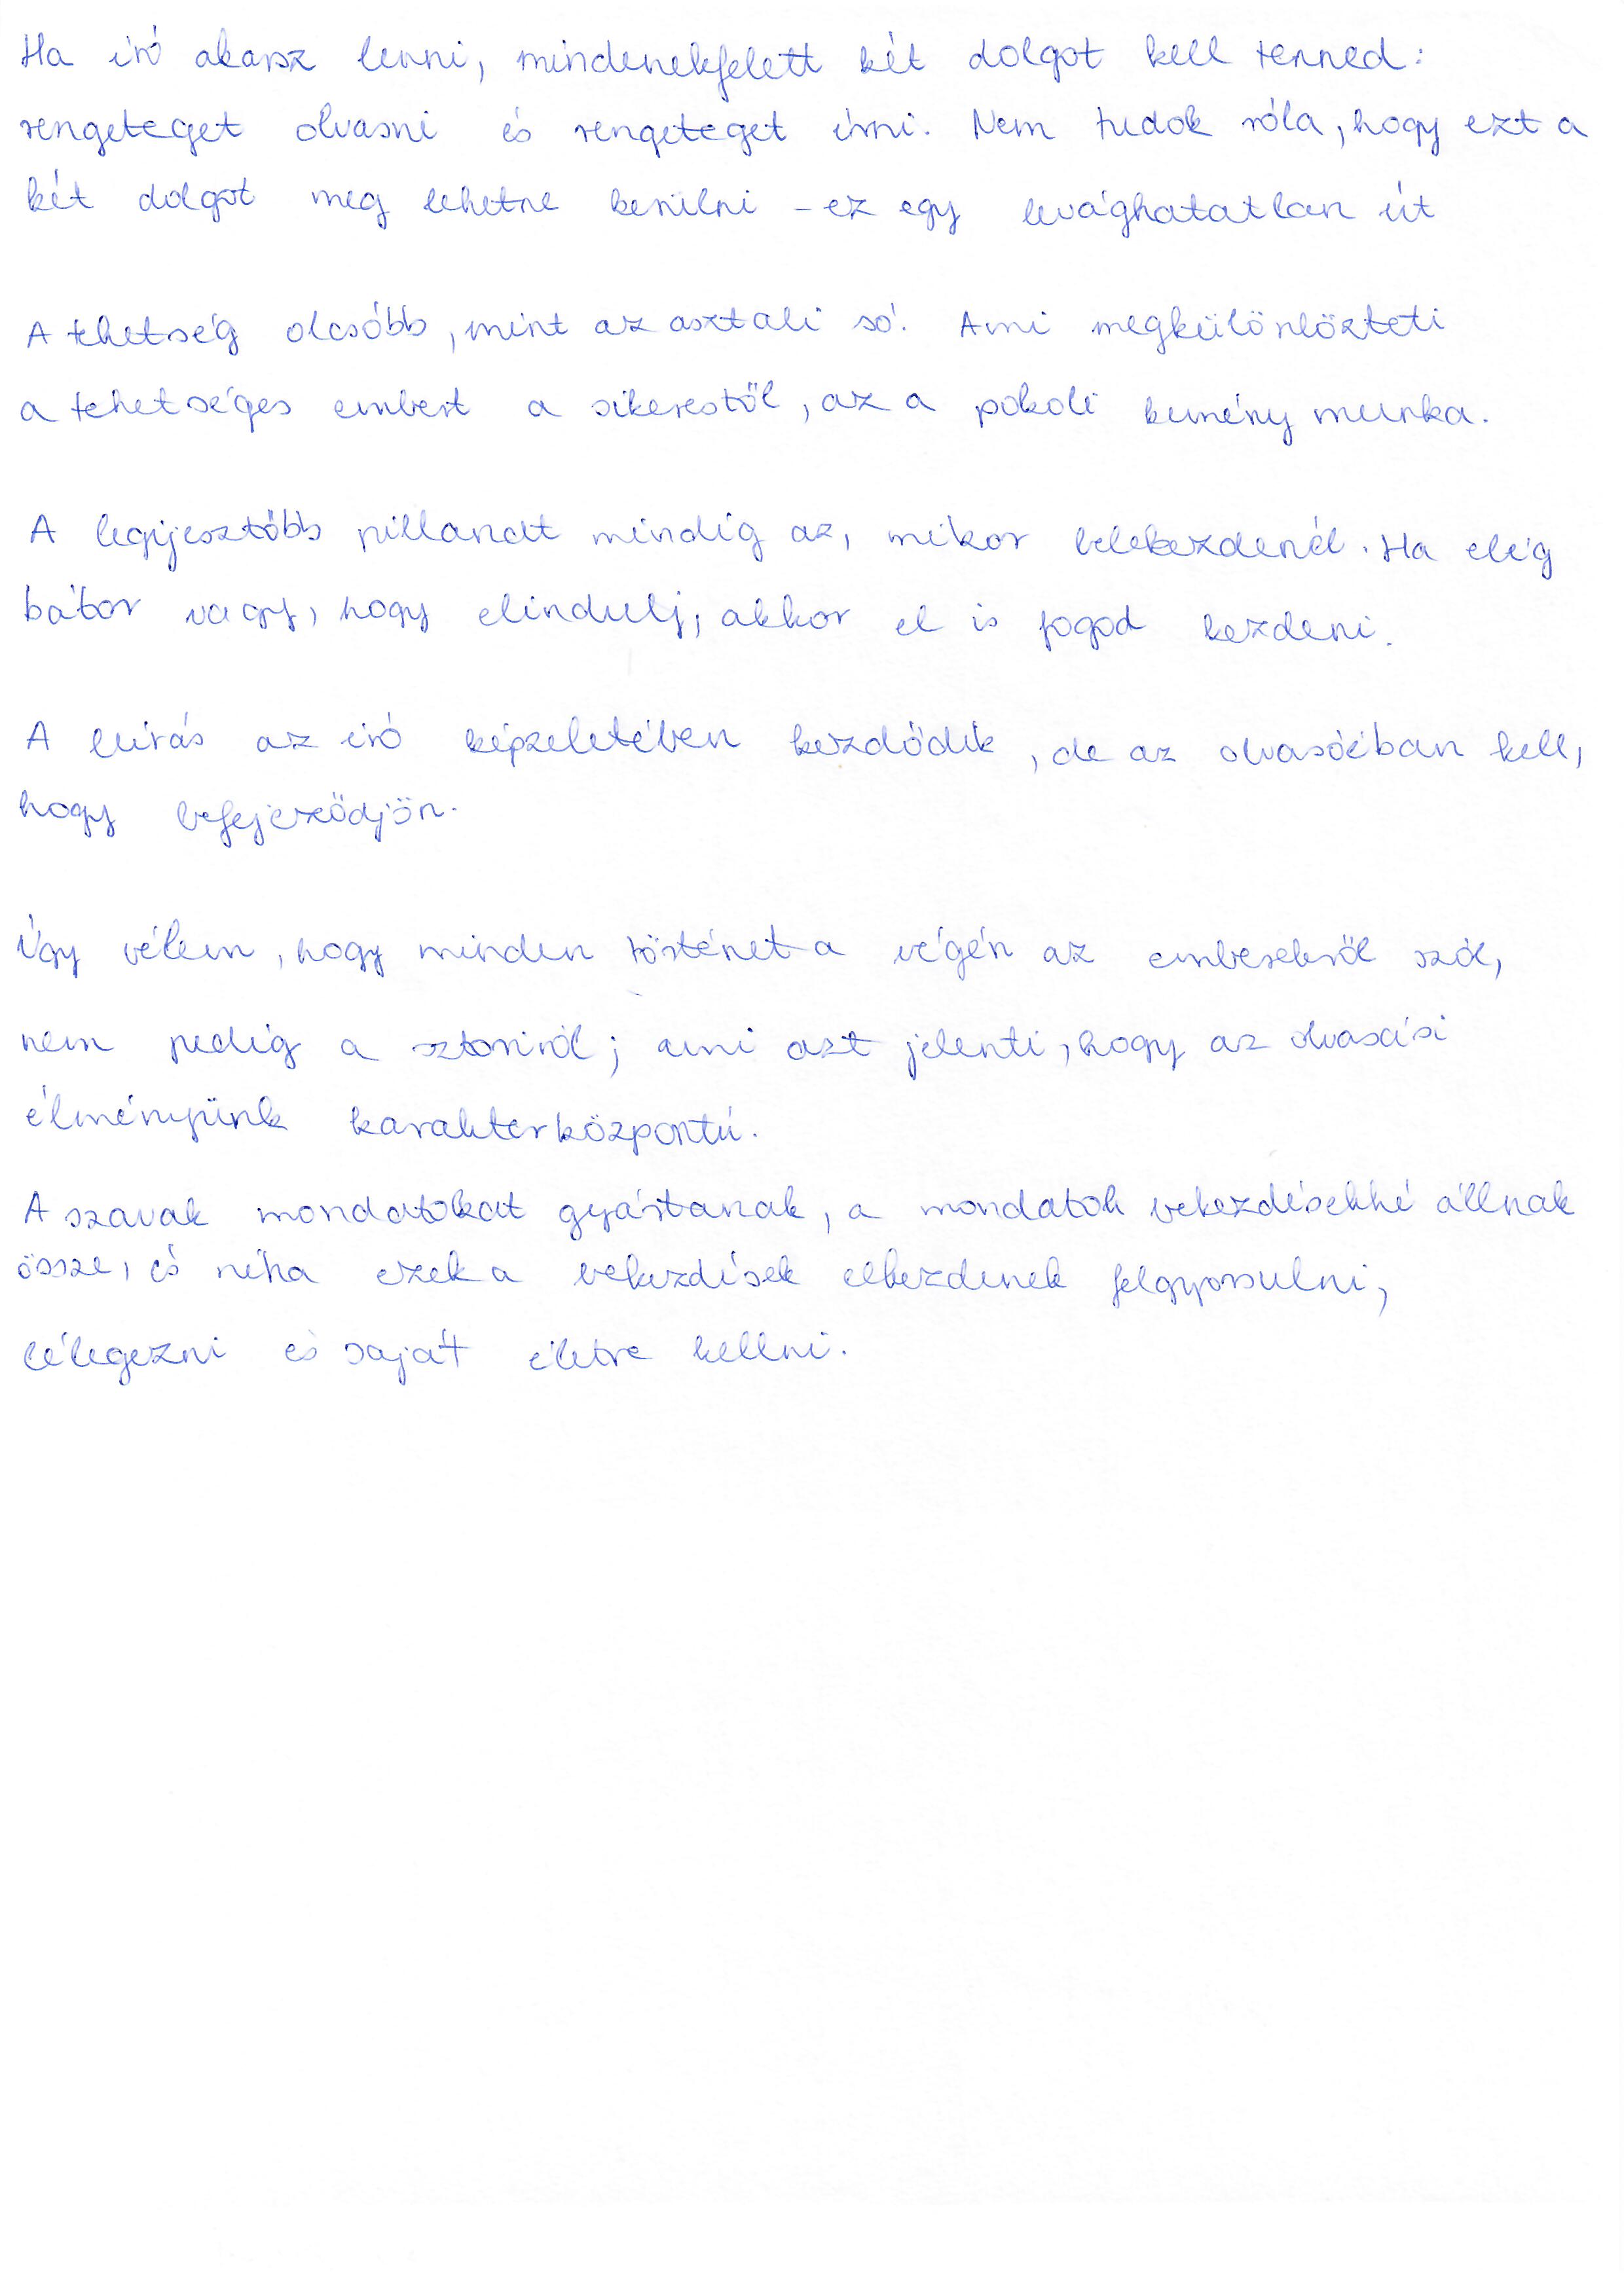 Ha író akarsz lenni, mindenekfelett két dolgot kell tenned:
rengeteget olvasni és rengeteget írni. Nem tudok róla, hogy ezt a
két dolgot meg lehetne kerülni - ez egy levághatatlan út
A tehetség olcsóbb, mint az asztali só. Ami megkülönbözteti
a tehetséges embert a sikerestől, az a pokoli kemény munka.
A legijesztőbb pillanat mindig az, mikor belekezdenél. Ha elég
bátor vagy, hogy elindulj, akkor el is fogod kezdeni.
A leírás az író képzeletében kezdődik, de az olvasóéban kell,
hogy befejeződjön.
Úgy vélem, hogy minden történet a végén az emberekről szól,
nem pedig a sztoriról; ami azt jelenti, hogy az olvasási
élményünk karakterközpontú.
A szavak mondatokat gyártanak, a mondatok bekezdésekké állnak
össze, és néha ezek a bekezdések elkezdenek felgyorsulni,
lélegezni és saját életre kellni.